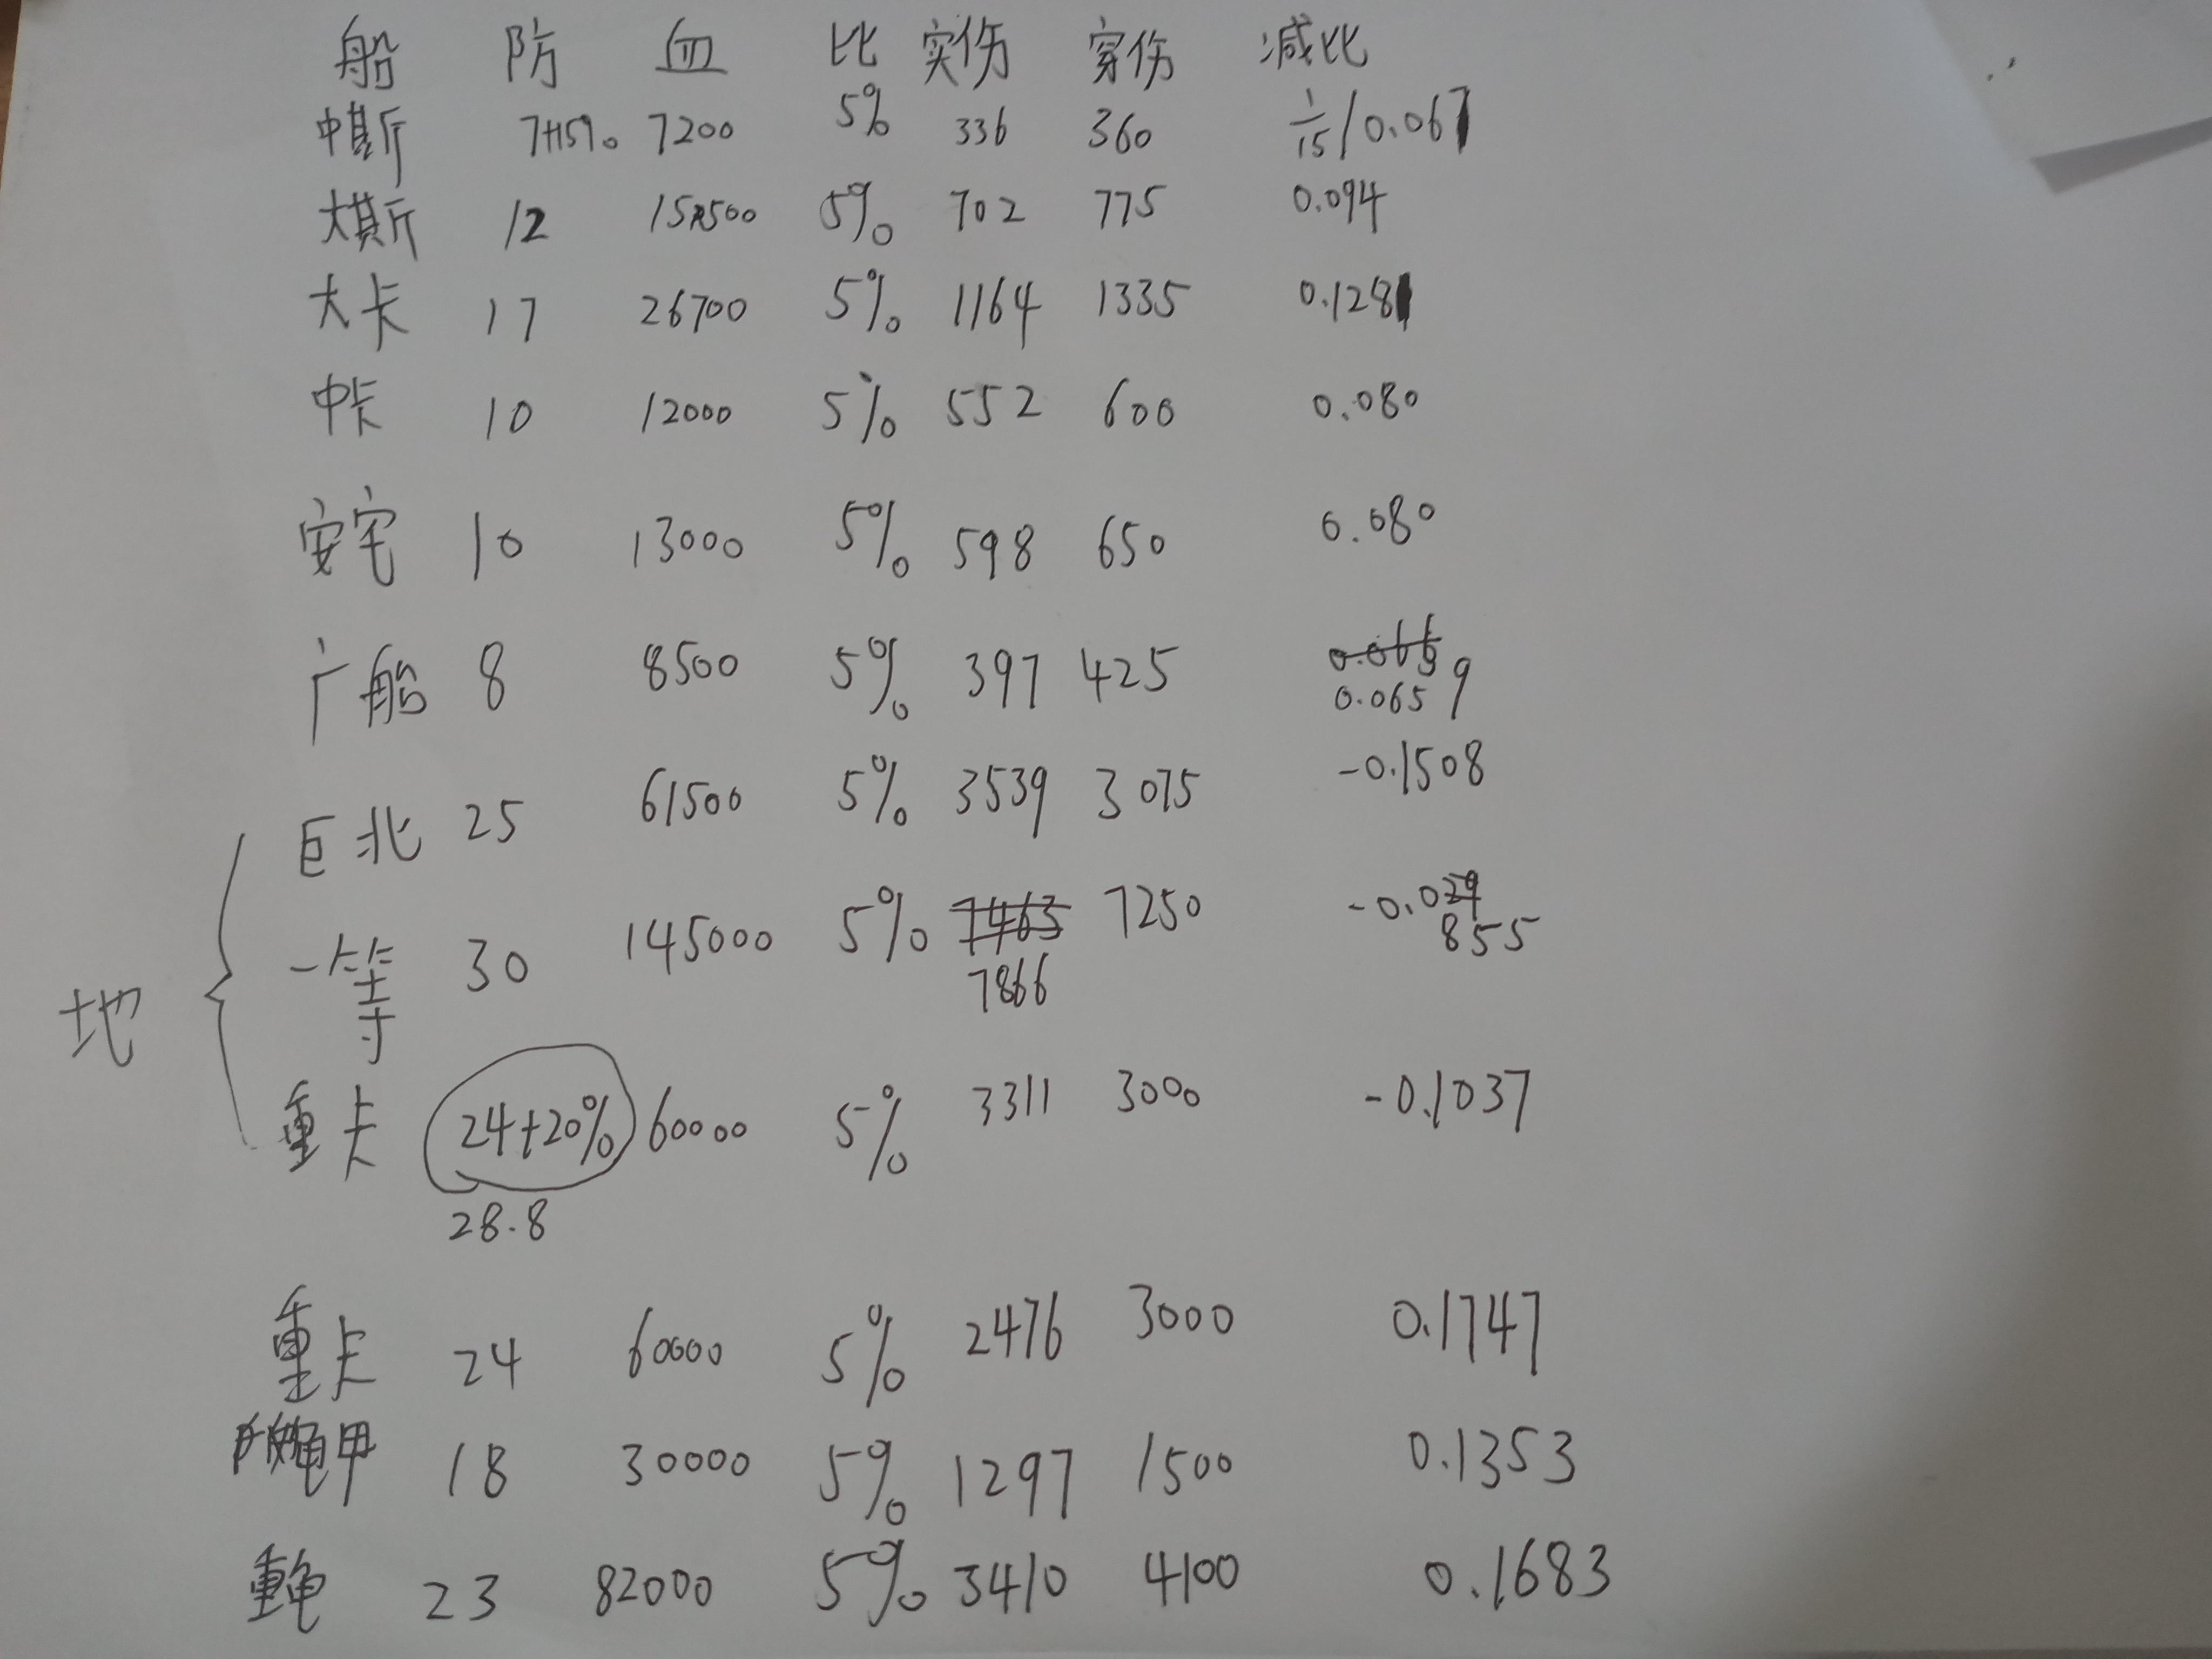 船 防 血 比 实伤 穿伤 减比
中斯 7+15% 7200 5% 336 360 1/15/0.067
大斯 12 15500 5% 702 775 0.094
大卡 17 26700 5% 1164 1335 0.128
中卡 10 12000 5% 552 600 0.080
安宅 10 13000 5% 598 650 0.080
广船 8 8500 5% 397 425 0.0659
巨北 25 61500 5% 3539 3075 -0.1508
一等 30 145000 5% 7463 7250 -0.0855
7866
地
重卡 24+20% 60000 5% 3311 3000 -0.1037
28.8
重卡 24 60000 5% 2476 3000 0.1747
龟甲 18 30000 5% 1297 1500 0.1353
重龟 23 82000 5% 3410 4100 0.1683